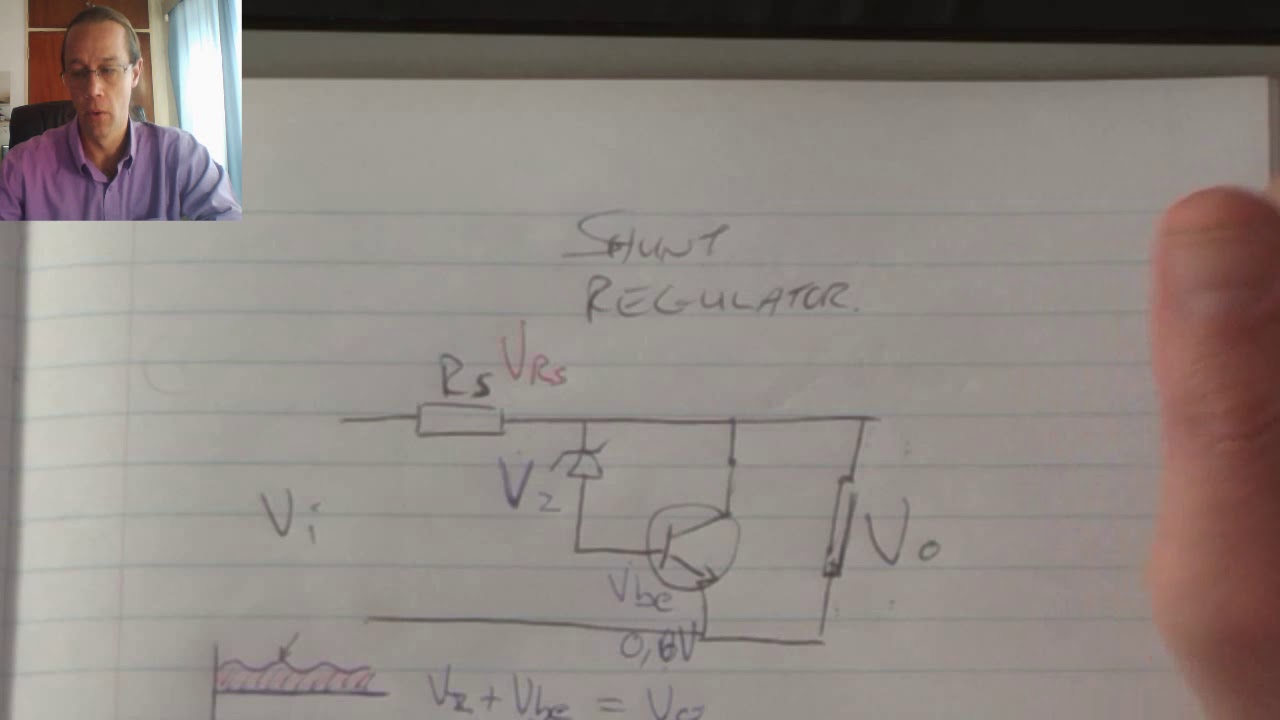 SHUNT
REGULATOR.
Rs VRs
Vz
Vi
Vo
Vbe
0,6V
Vz + Vbe =